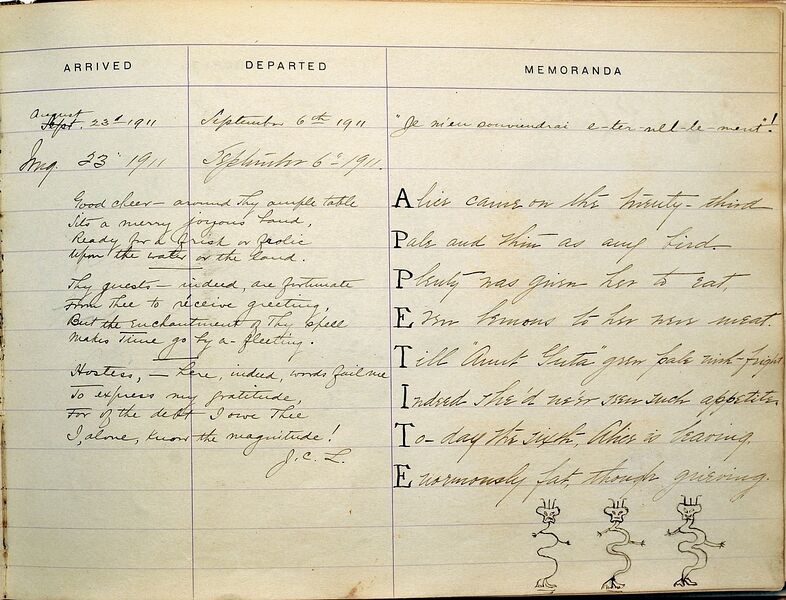 ARRIVED DEPARTED MEMORANDA
August
Sept. 23d 1911 September 6th 1911 "Je m'en souviendrai e-ter-nel-le-ment"!
Aug. 23d 1911 September 6th 1911.
Good cheer — around thy ample table
Sits a merry joyous band,
Ready for a frisk or frolic
Upon the water or the land.
Thy guests — indeed, are fortunate
From thee to receive greeting,
But the enchantment of thy spell
Makes Time go by a-fleeting.
Hostess, — here, indeed, words fail me
To express my gratitude,
For of the debt I owe Thee
I, alone, know the magnitude!
J. C. L.
Alice came on the twenty-third
Pale and thin as any bird.
Plenty was given her to eat,
Even lemons to her were meat.
Till "Aunt Guta" grew pale with fright
Indeed she'd never seen such appetite
To-day the sixth, Alice is leaving
Enormously fat, though grieving.